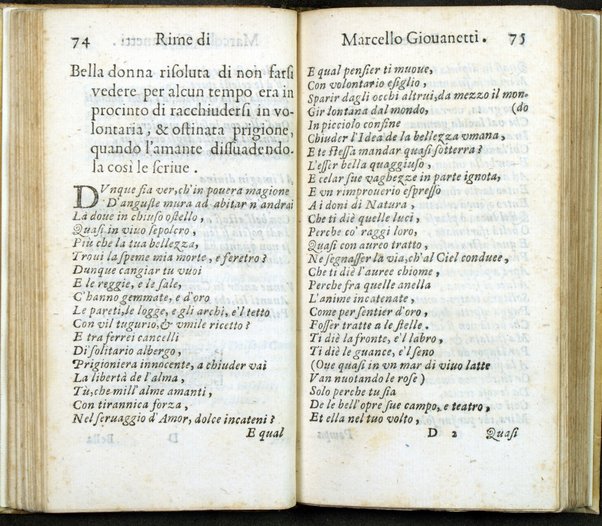 74 Rime di
Bella donna risoluta di non farsi
vedere per alcun tempo era in
procinto di racchiudersi in vo-
lontaria, & ostinata prigione,
quando l'amante dissuadendo-
la così le scriue.
DVnque fia ver, ch'in pouera magione
D'anguste mura ad abitar n'andrai
Là doue in chiuso ostello,
Quasi in viuo sepolcro,
Più che la tua bellezza,
Troui la speme mia morte, e feretro?
Dunque cangiar tu vuoi
E le reggie, e le sale,
C'hanno gemmate, e d'oro
Le pareti, le logge, e gli archi, e'l tetto
Con vil tugurio, & vmile ricetto?
E tra ferrei cancelli
Di solitario albergo,
Prigioniera innocente, a chiuder vai
La libertà de l'alma,
Tù, che mill'alme amanti,
Con tirannica forza,
Nel seruaggio d'Amor, dolce incateni?
E qual
Marcello Giouanetti. 75
E qual pensier ti muoue,
Con volontario esiglio,
Sparir dagli occhi altrui, da mezzo il mon-
Gir lontana dal mondo, (do
In picciolo confine
Chiuder l'Idea de la bellezza vmana,
E te stessa mandar quasi sotterra?
L'esser bella quaggiuso,
E celar sue vaghezze in parte ignota,
E vn rimprouerio espresso
A i doni di Natura,
Che ti diè quelle luci,
Perche co' raggi loro,
Quasi con aureo tratto,
Ne segnasser la via, ch'al Ciel conduee,
Che ti diè l'auree chiome,
Perche fra quelle anella
L'anime incatenate,
Come per sentier d'oro,
Fosser tratte a le stelle.
Ti diè la fronte, e'l labro,
Ti diè le guance, e'l seno
(Oue quasi in vn mar di viuo latte
Van nuotando le rose)
Solo perche tu sia
De le bell'opre sue campo, e teatro,
Et ella nel tuo volto,
D 2 Quasi